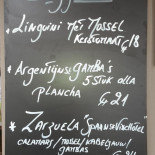 * Linguini Met Mossel
Kerstomaat €18
* Argentijnse Gamba's
5 stuk alla
plancha
€ 21
* Zarzuela "Spaanse Visschotel"
Calamars / Mossel / Kabeljauw /
Gambas
€ 24